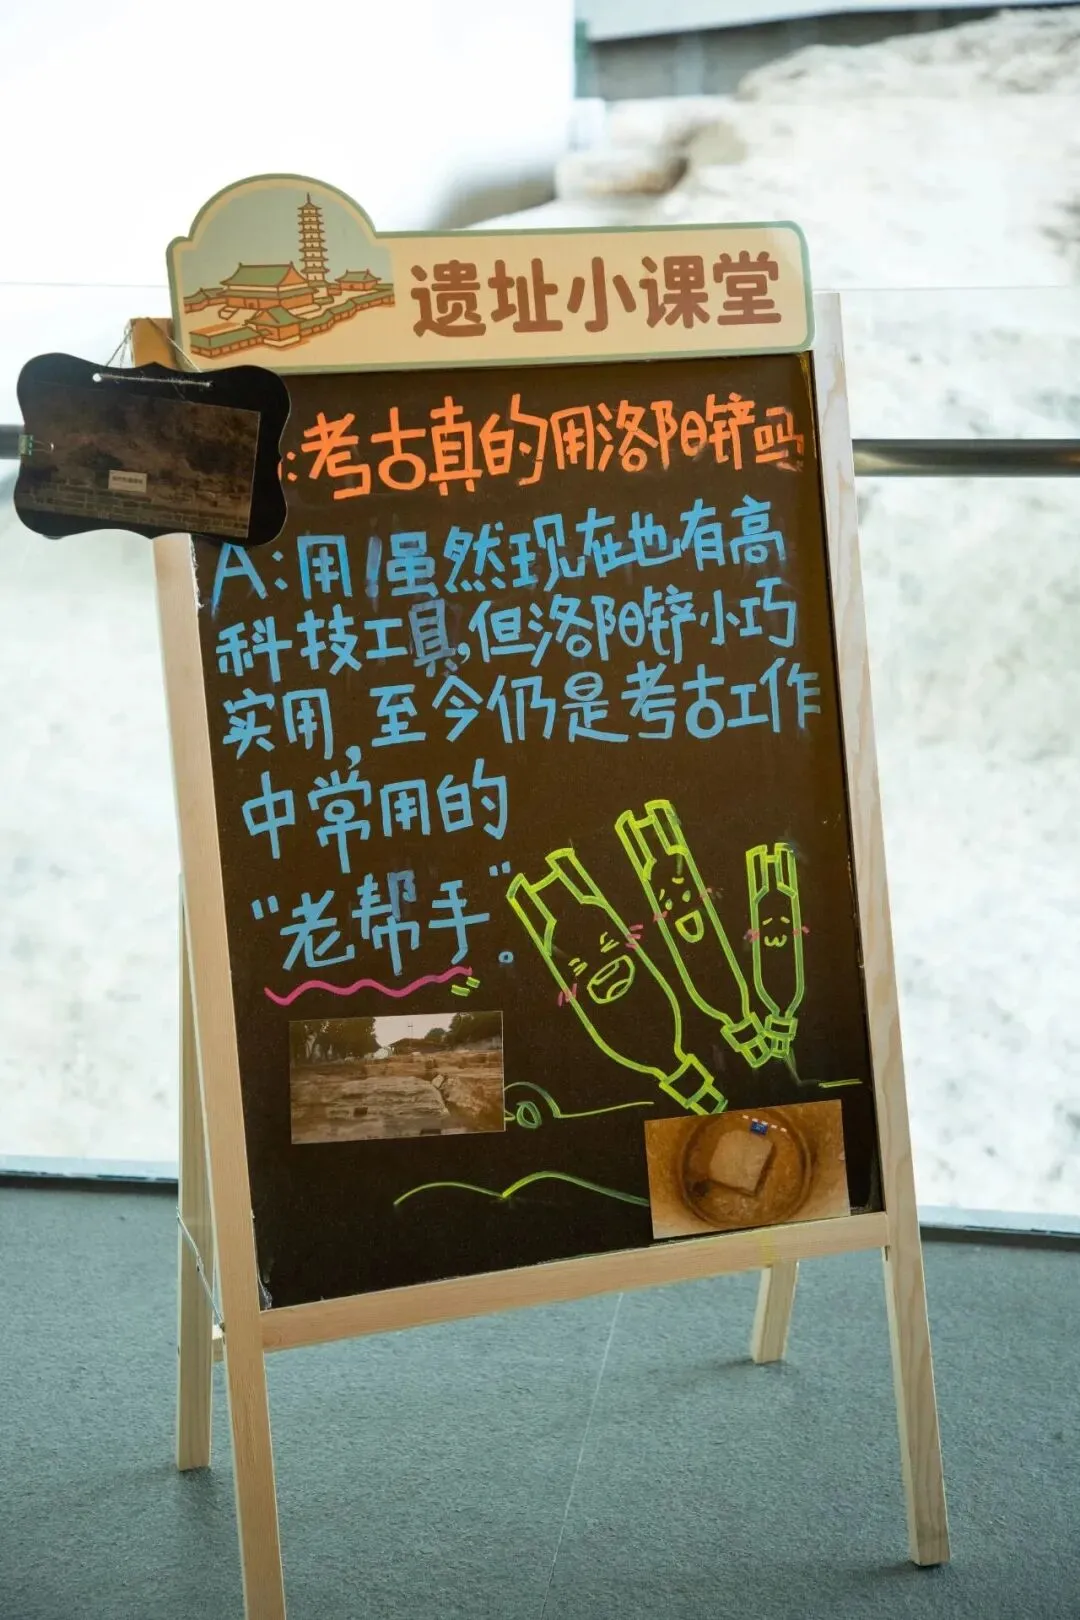 遗址小课堂
:考古真的用洛阳铲吗
A:用!虽然现在也有高
科技工具,但洛阳铲小巧
实用,至今仍是考古工作
中常用的
“老帮手”。